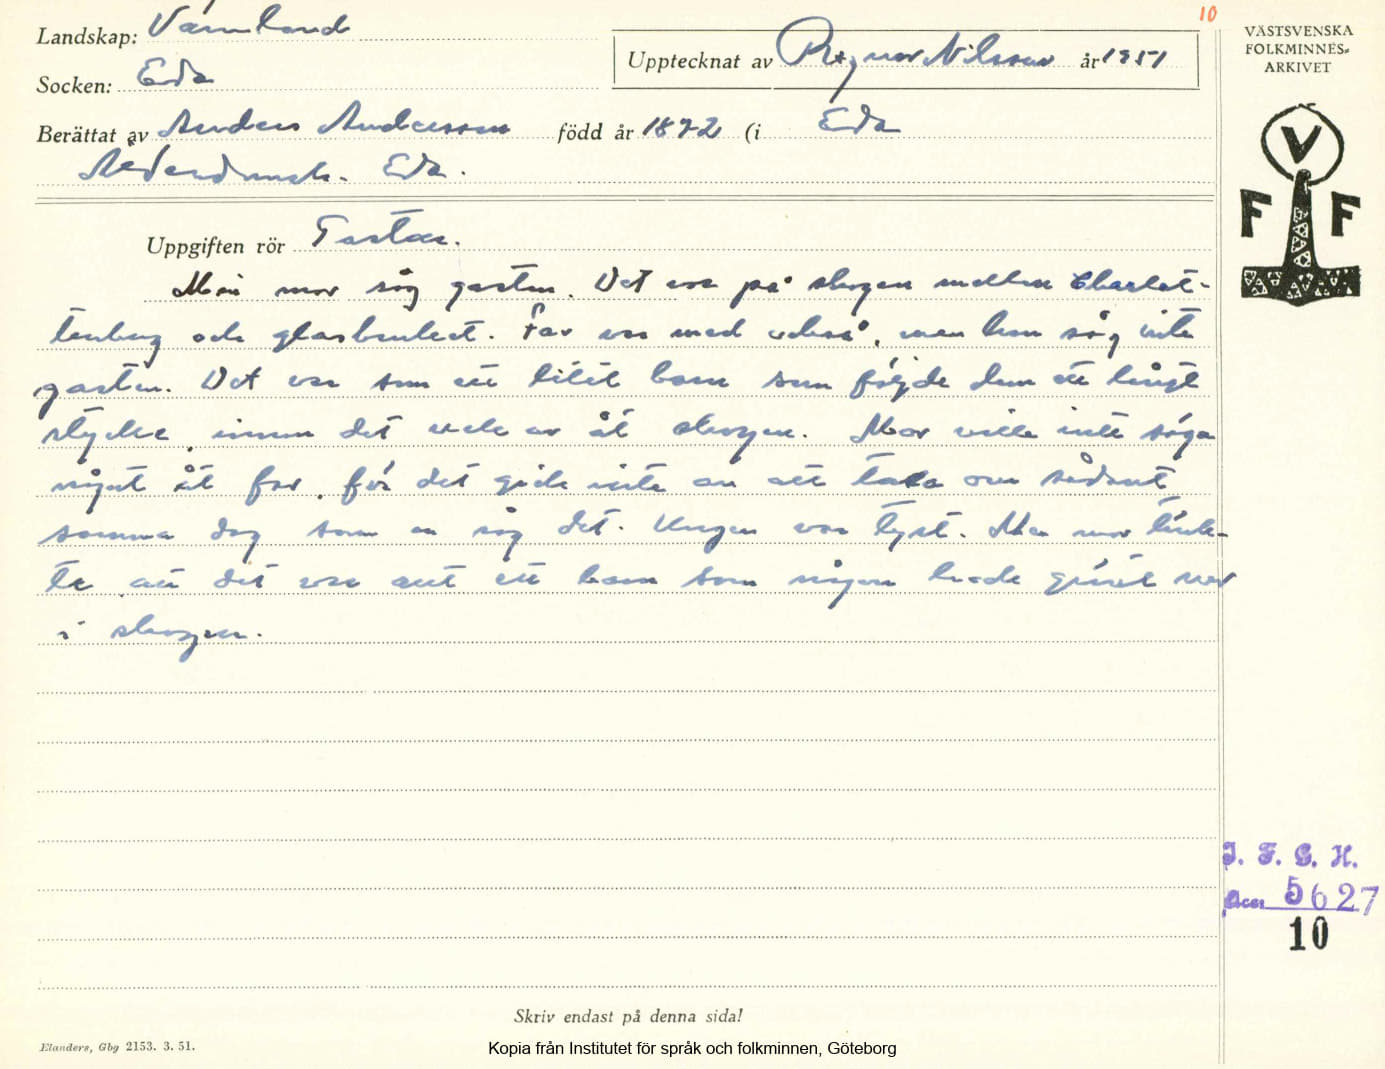 10
Landskap: Värmland
Socken: Eda
Upptecknat av Ragnar Nilsson år 1951
Berättat av Anders Andersson född år 1872 (i Eda
Eda.
Uppgiften rör Gastar.
Min mor såg gasten. Det var på skogen mellan Charlot-
tenberg och glasbruket. Far var med också, men han såg inte
gasten. Det var som ett litet barn som följde dem ett långt
stycke, innan det vek av åt skogen. Mor ville inte säga
något åt far, för det gick inte an att tala om sådant
samma dag som en såg det. Ungen var tyst. Men mor tänk-
te att det var ett barn som någon hade gömt ner
i skogen.
Skriv endast på denna sida!
Elanders, Gbg 2153. 3. 51.
Kopia från Institutet för språk och folkminnen, Göteborg
VÄSTSVENSKA
FOLKMINNES-
ARKIVET
V
F F
I. F. G. H.
Acc. 5627
10